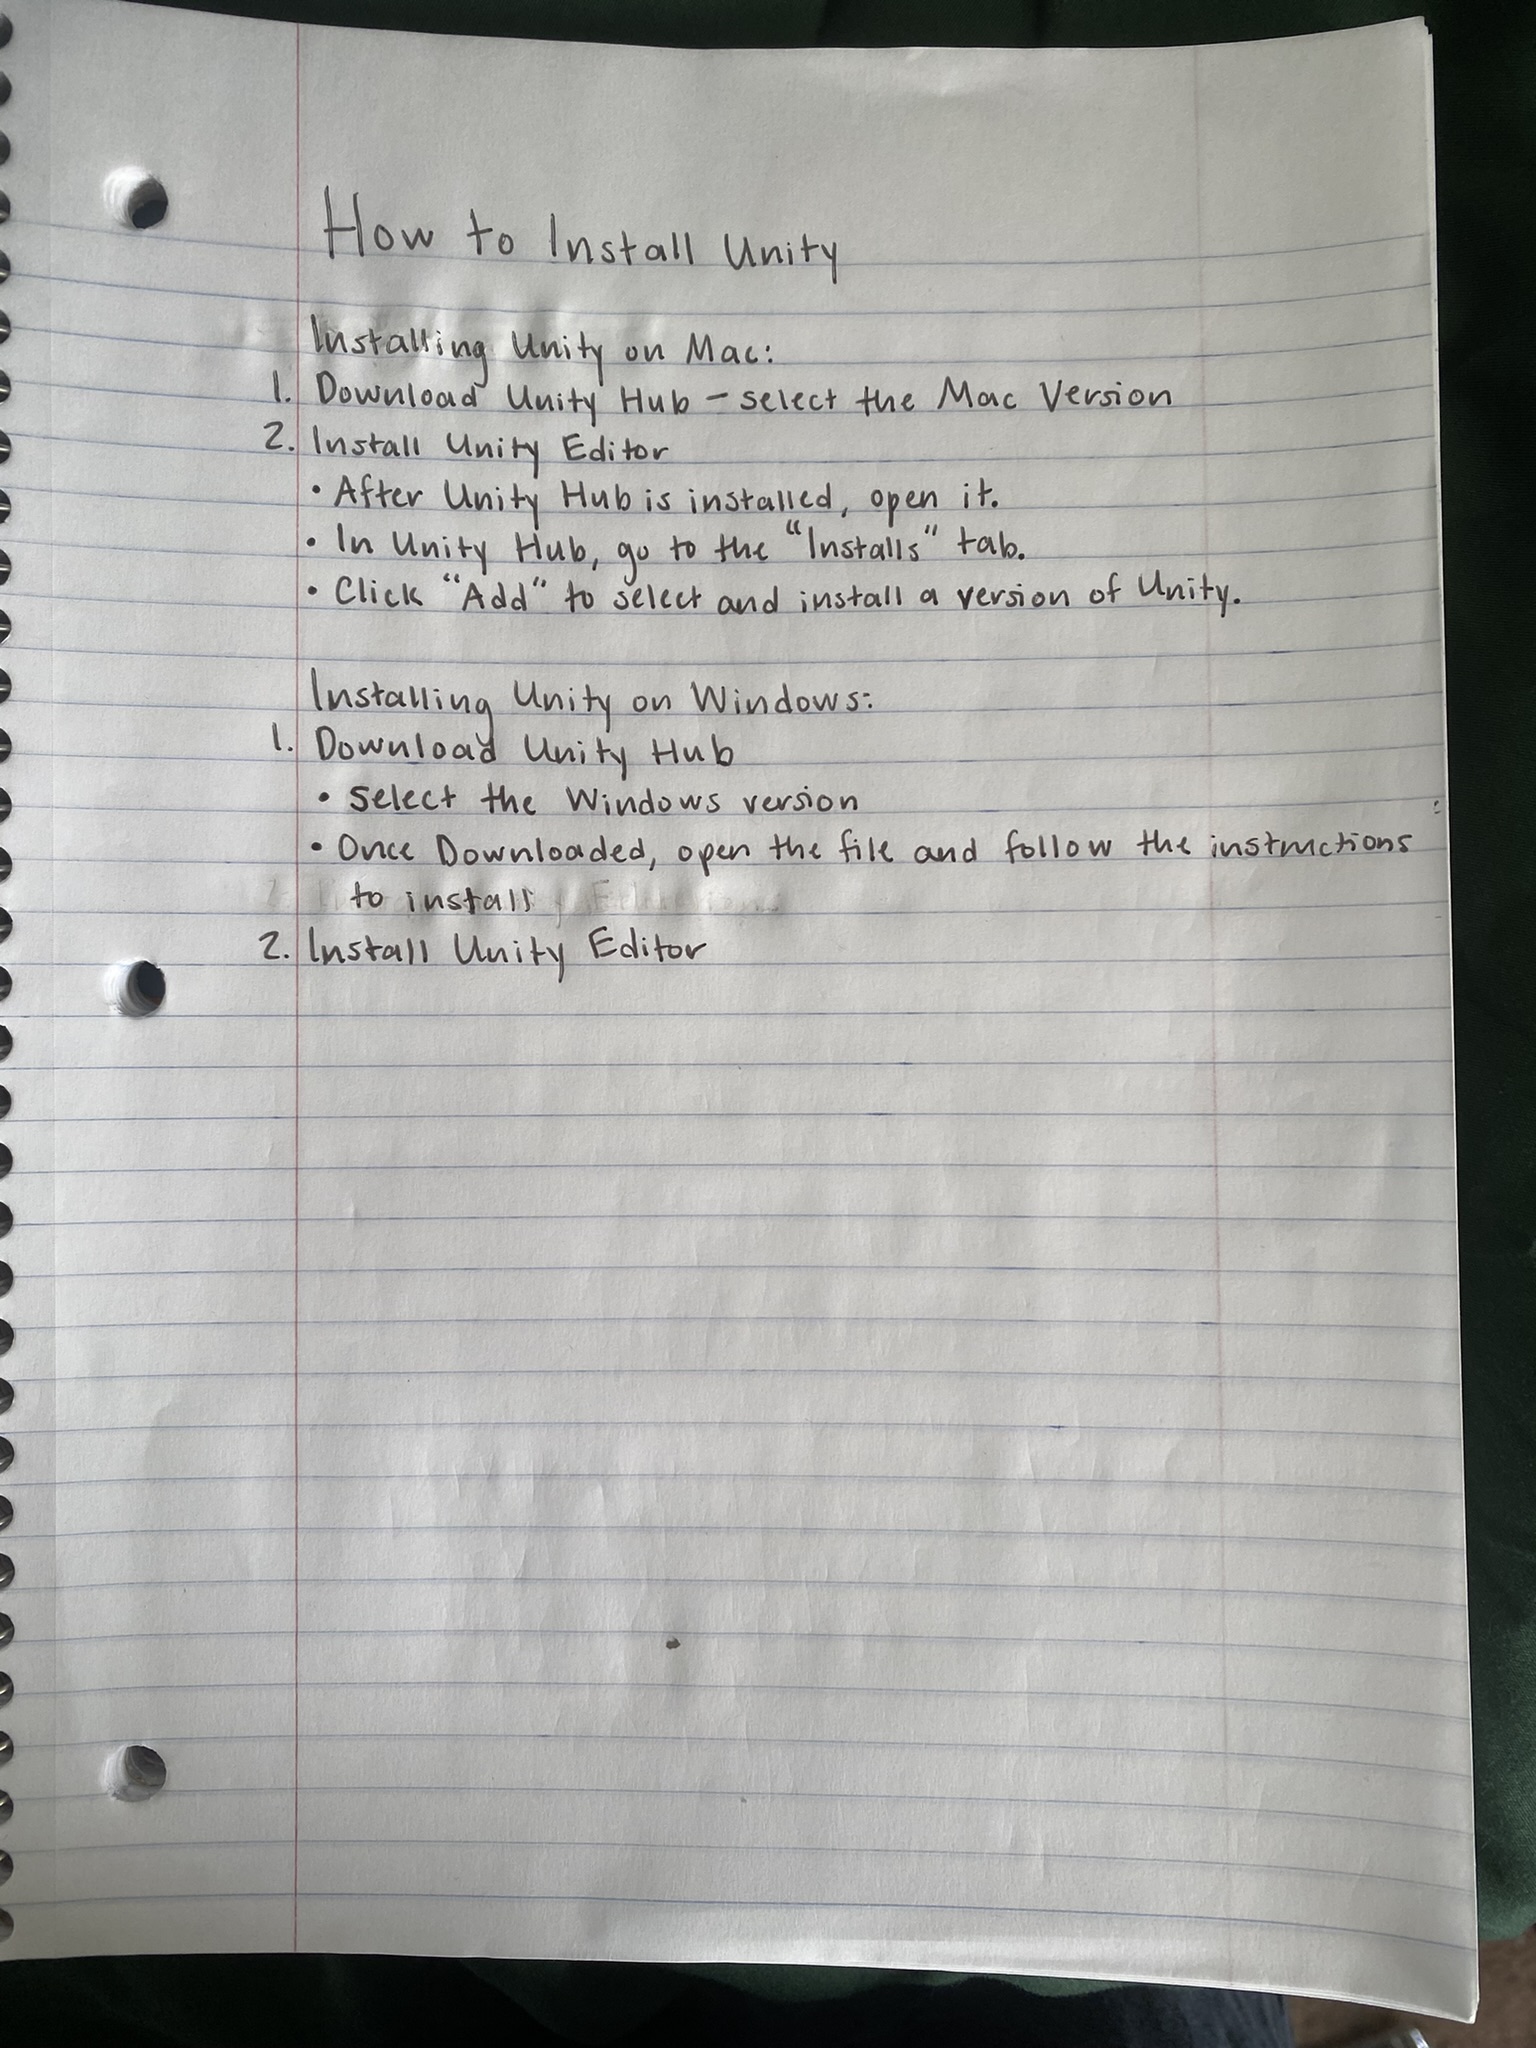 How to Install Unity
Installing Unity on Mac:
1. Download Unity Hub - select the Mac Version
2. Install Unity Editor
• After Unity Hub is installed, open it.
• In Unity Hub, go to the "Installs" tab.
• Click "Add" to select and install a version of Unity.
Installing Unity on Windows:
1. Download Unity Hub
• Select the Windows version
• Once Downloaded, open the file and follow the instructions
to install
2. Install Unity Editor